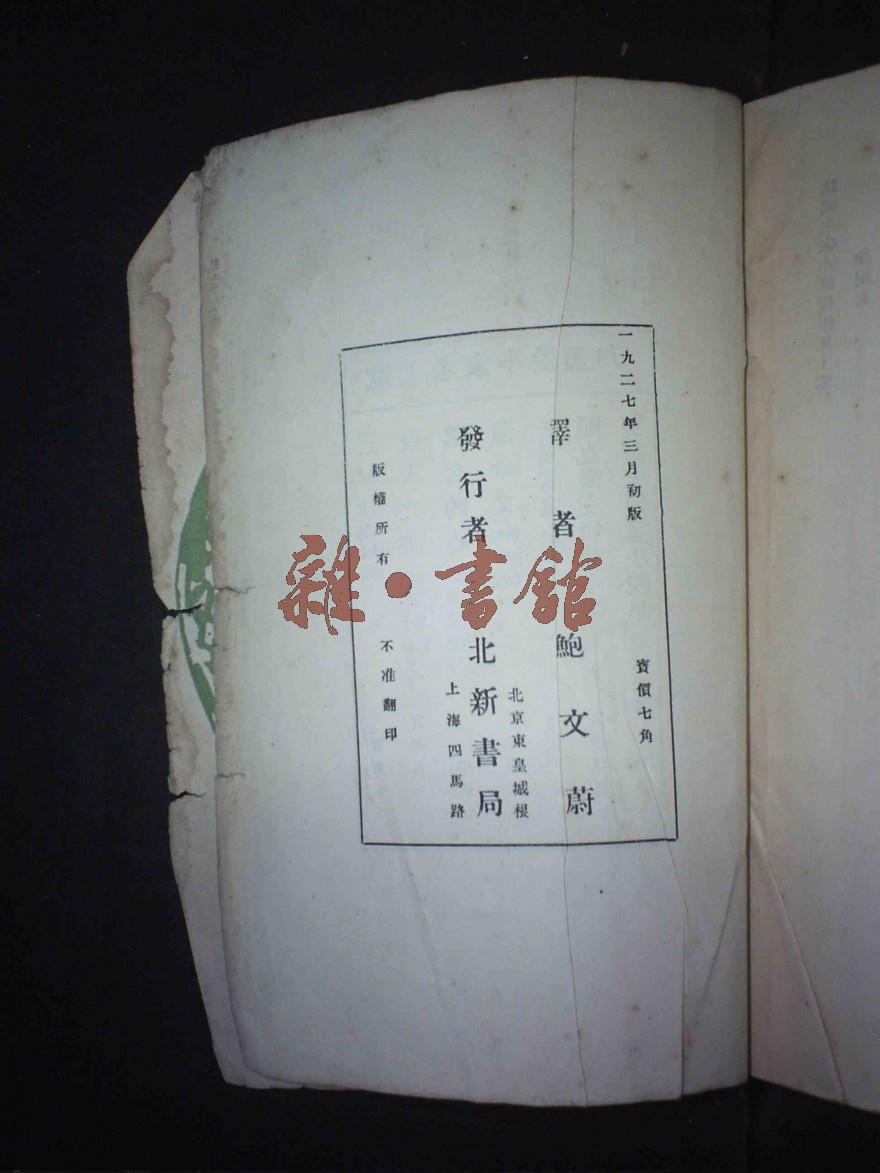 一九二七年三月初版
實價七角
譯者 鮑文蔚
發行者 北新書局
北京東皇城根
上海四馬路
版權所有 不准翻印
雜·書館